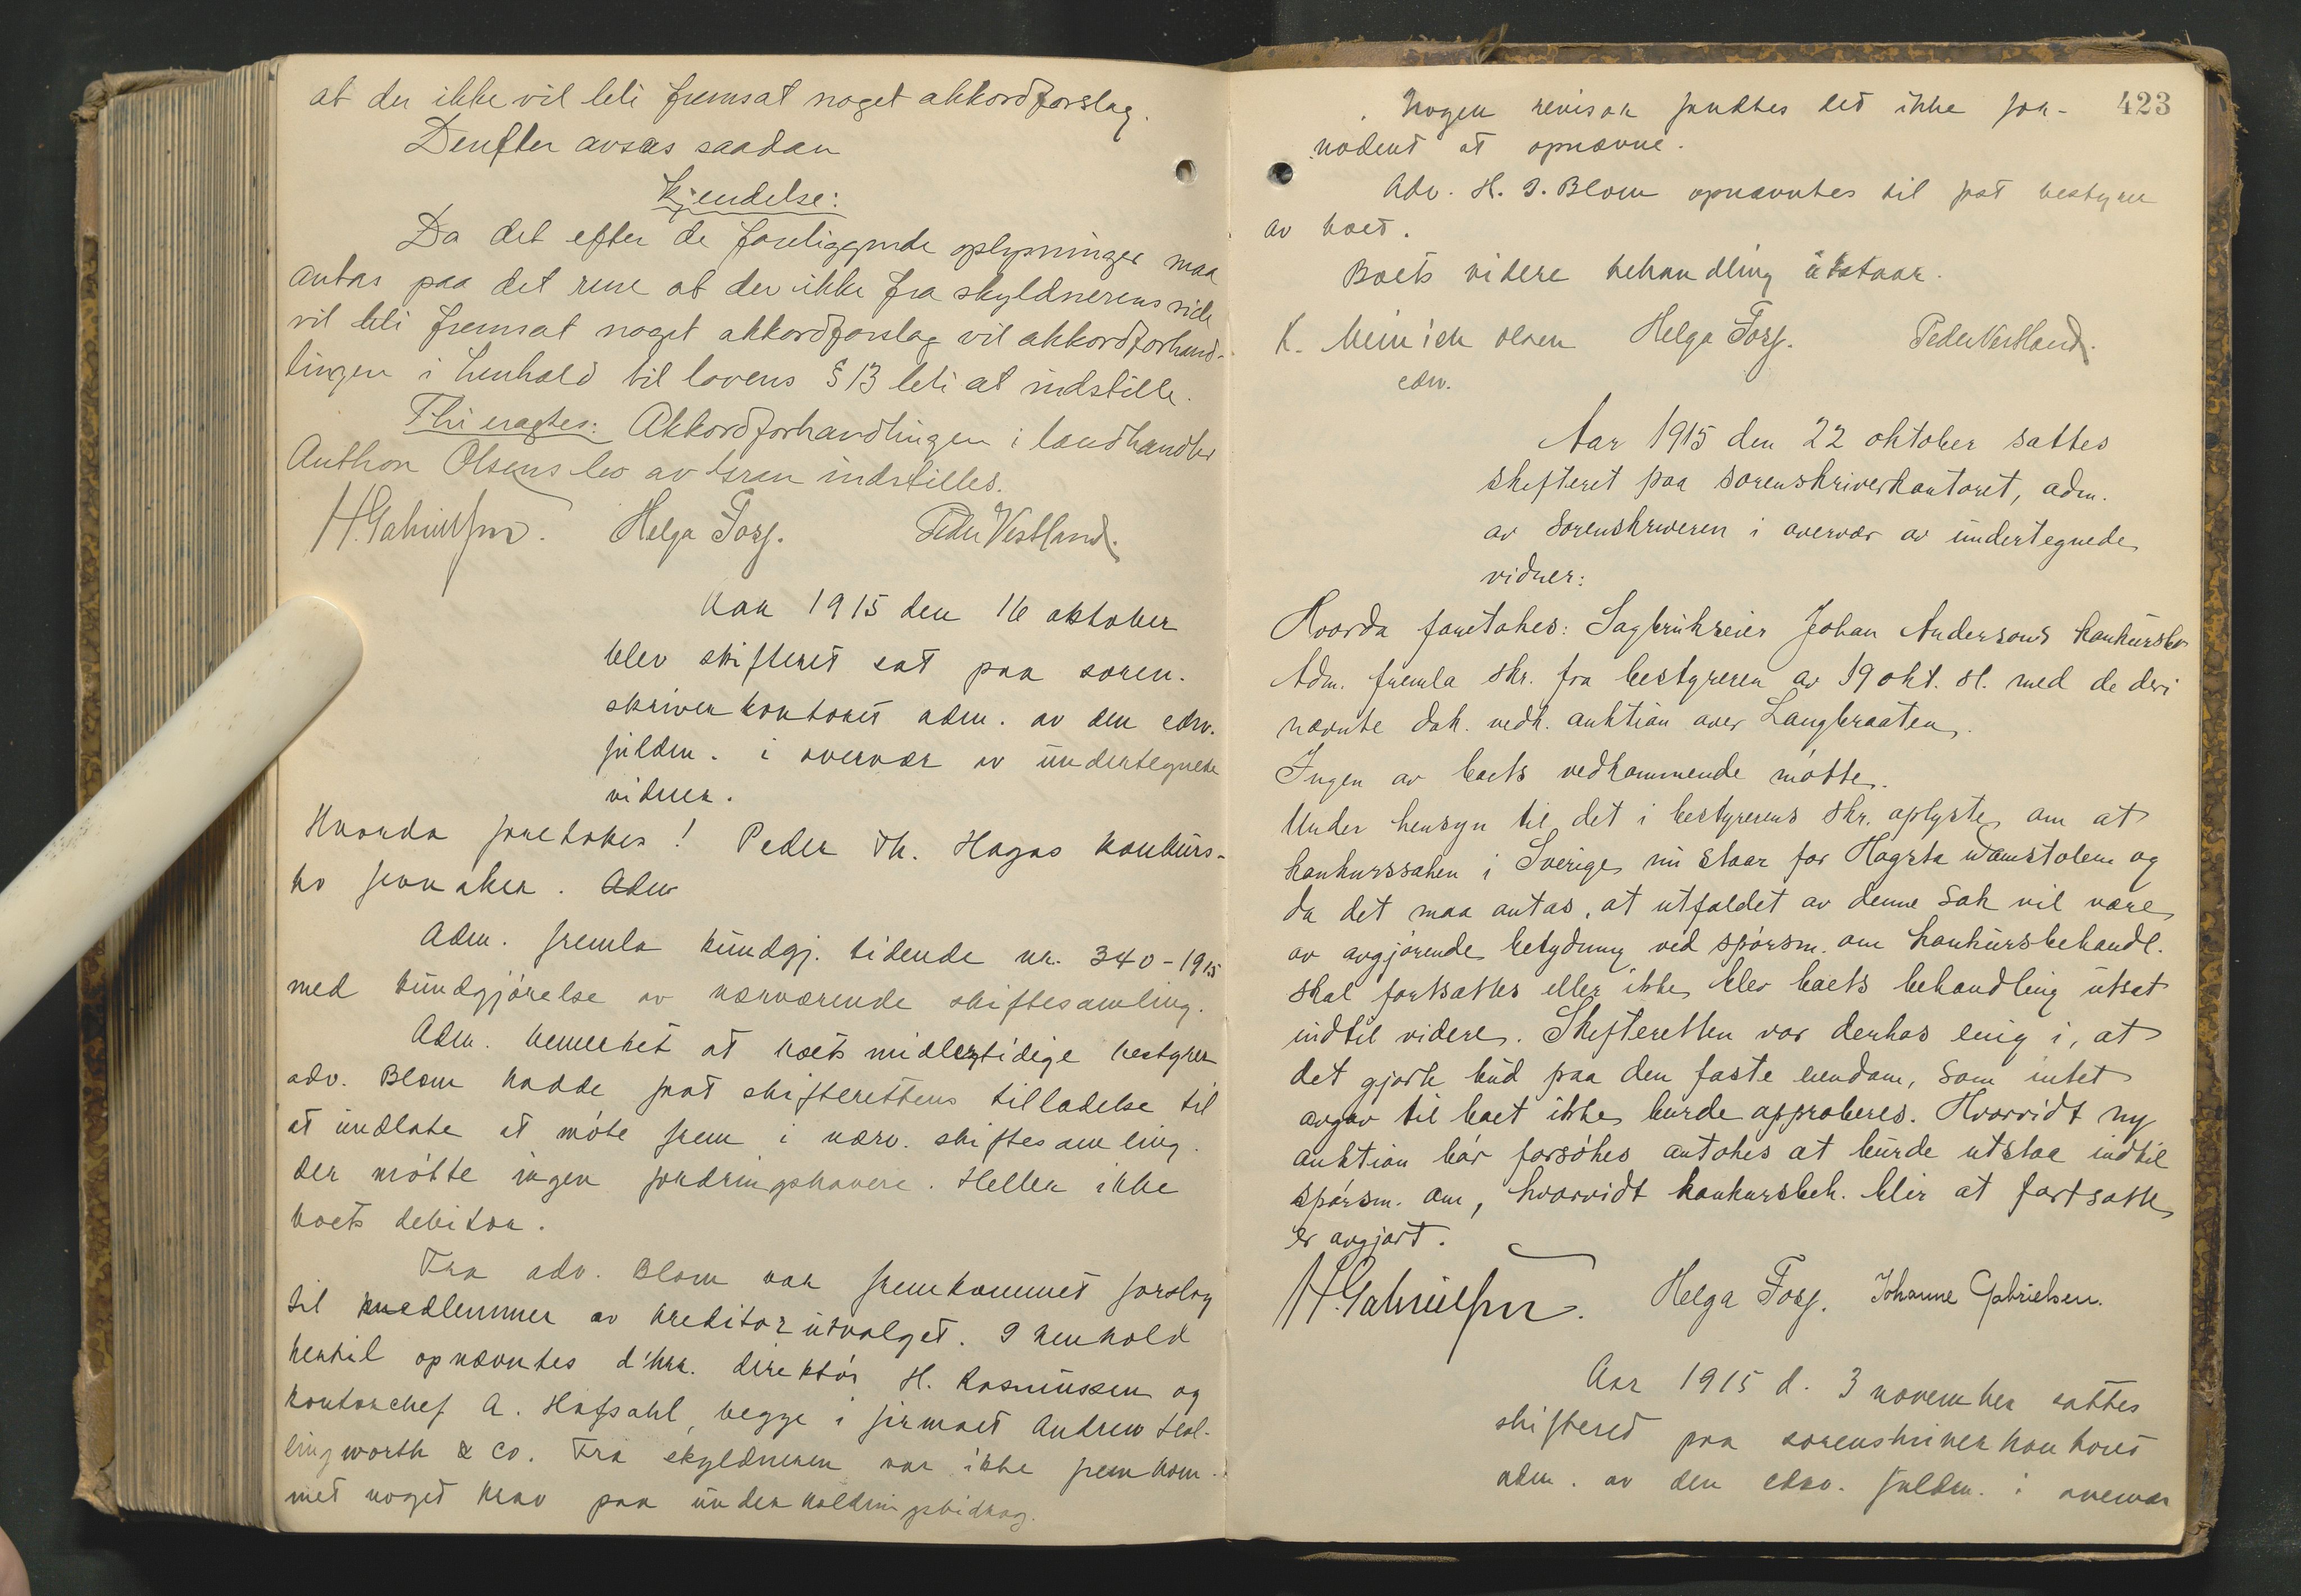 at der ikke vil bli fremsat noget akkordforslag.
Derefter avsas saadan
Kjendelse:
Da det efter de foreliggende oplysninger maa
antas paa det rene at der ikke fra skyldnerens side
vil bli fremsat noget akkordforslag vil akkordforhand-
lingen i henhold til lovens § 13 bli at indstille.
Thi eragtes: Akkordforhandlingen i landhandler
Anthon Olsens bo av Gran indstilles.
H. Gabrielsen. Helga Foss. Peder Vestland.
Aar 1915 den 16 oktober
blev skifteret sat paa soren-
skriverkontoret adm. av den edsv.
fuldm. i overvær av undertegnede
vidner.
Hvorda foretokes! Peder Th. Hagas konkurs-
bo Adm
Adm. fremla kundgj. tidende nr. 340-1915
med kundgjørelse av nærværende skiftesamling.
Adm. bemerket at boets midlertidige bestyrer
adv. Blom hadde faat skifterettens tilladelse til
at undlate at møte frem i nærv. skiftesamling.
Der møtte ingen fordringshavere. Heller ikke
boets debitor.
Fra adv. Blom var fremkommet forslag
til medlemmer av kreditorutvalget. I henhold
hertil opnævntes d'hrr. direktør H. Rasmussen og
kontorchef A. Hafsahl, begge i firmaet Andrew
lingworth & Co. Fra skyldneren var ikke fremkom-
met noget krav paa underholdningsbidrag.
423
Nogen revisor fandtes det ikke for-
nødent at opnævne.
Adv. H. J. Blom opnævntes til fast bestyrer
av boet.
Boets videre behandling utstaar.
K. Meinich Olsen Helga Foss. Peder Vestland.
edsv.
Aar 1915 den 22 oktober sattes
skifteret paa sorenskriverkontoret, adm.
av sorenskriveren i overvær av undertegnede
vidner:
Hvorda foretokes: Sagbrukseier Johan Andersons konkursbo
Adm. fremla skr. fra bestyreren av 19 okt. sl. med de deri
nævnte dok. vedk. auktion over Langbraaten.
Ingen av boets vedkommende møtte.
Under hensyn til det i bestyrerens skr. oplyste om at
konkurssaken i Sverige nu staar for Høgsta domstolen og
da det maa antas, at utfaldet av denne sak vil være
av avgjørende betydning ved spørsm. om konkursbehandl.
skal fortsættes eller ikke, blev boets behandling utsat
indtil videre. Skifteretten var derhos enig i, at
det gjorte bud paa den faste eiendom, som intet
avgav til boet ikke burde approberes. Hvorvidt ny
auktion bør forsøkes antokes at burde utstaa indtil
spørsm. om, hvorvidt konkursbeh. blir at fortsætte
er avgjort.
H. Gabrielsen. Helga Foss. Johanne Gabrielsen.
Aar 1915 d. 3 november sattes
skifteret paa sorenskriverkontoret
adm. av den edsv. fuldm. i overvær